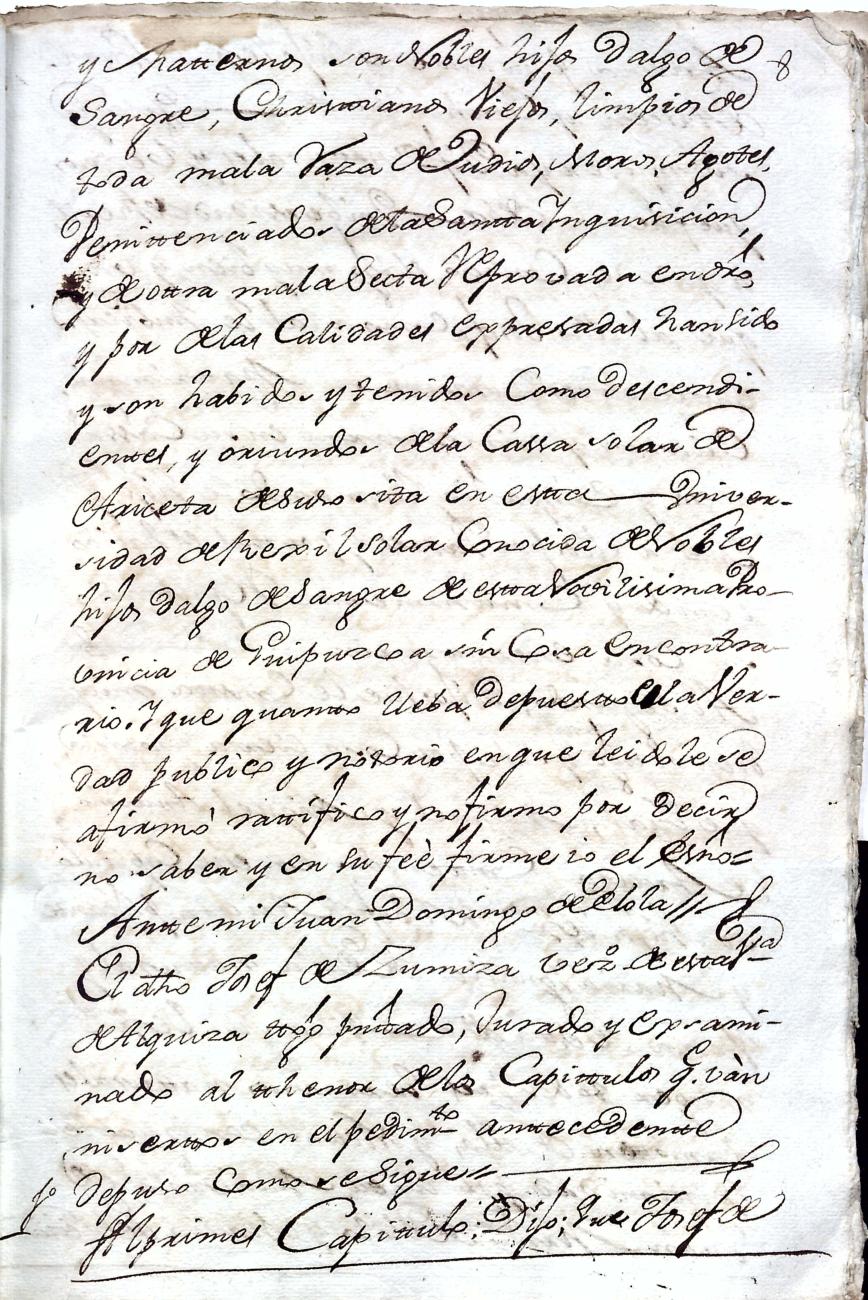 y Matternos son Nobles hijos dalgo de 8
Sangre, Christtianos Viejos, limpios de
toda mala Raza de Judios, Moros, Agotes,
Penittenciados de la Santta Inquisicion,
y de ottra mala Secta Reprovada en dro,
y por de las Calidades expresadas han sido
y son habidos y tenidos Como descendi-
enttes, y oriundos de la Cassa solar de
Ariceta de suso sita en estta Univer-
sidad de Rexil solar Conocida de Nobles
hijos dalgo de Sangre de estta Novilisima Pro-
vincia de Guipuzcoa sin Cosa en contra-
rio. Y que quantto lleba depuestto es la Ver-
dad publico y nottorio en que leidole se
afirmó rattifico y no firmo por decir
no saber y en su feè firme io el Essno=
Antte mi Juan Domingo de Elola //
El dtho Josef de Zumiza vezo de estta Va
de Alquiza ttgo pnttado, Jurado y exsami-
nado al thenor de los Capittulos q. vàn
insertos en el pedimto anttecedentte
depuso como se sigue=
po Al primer Capittulo: Dijo; Que Josef de